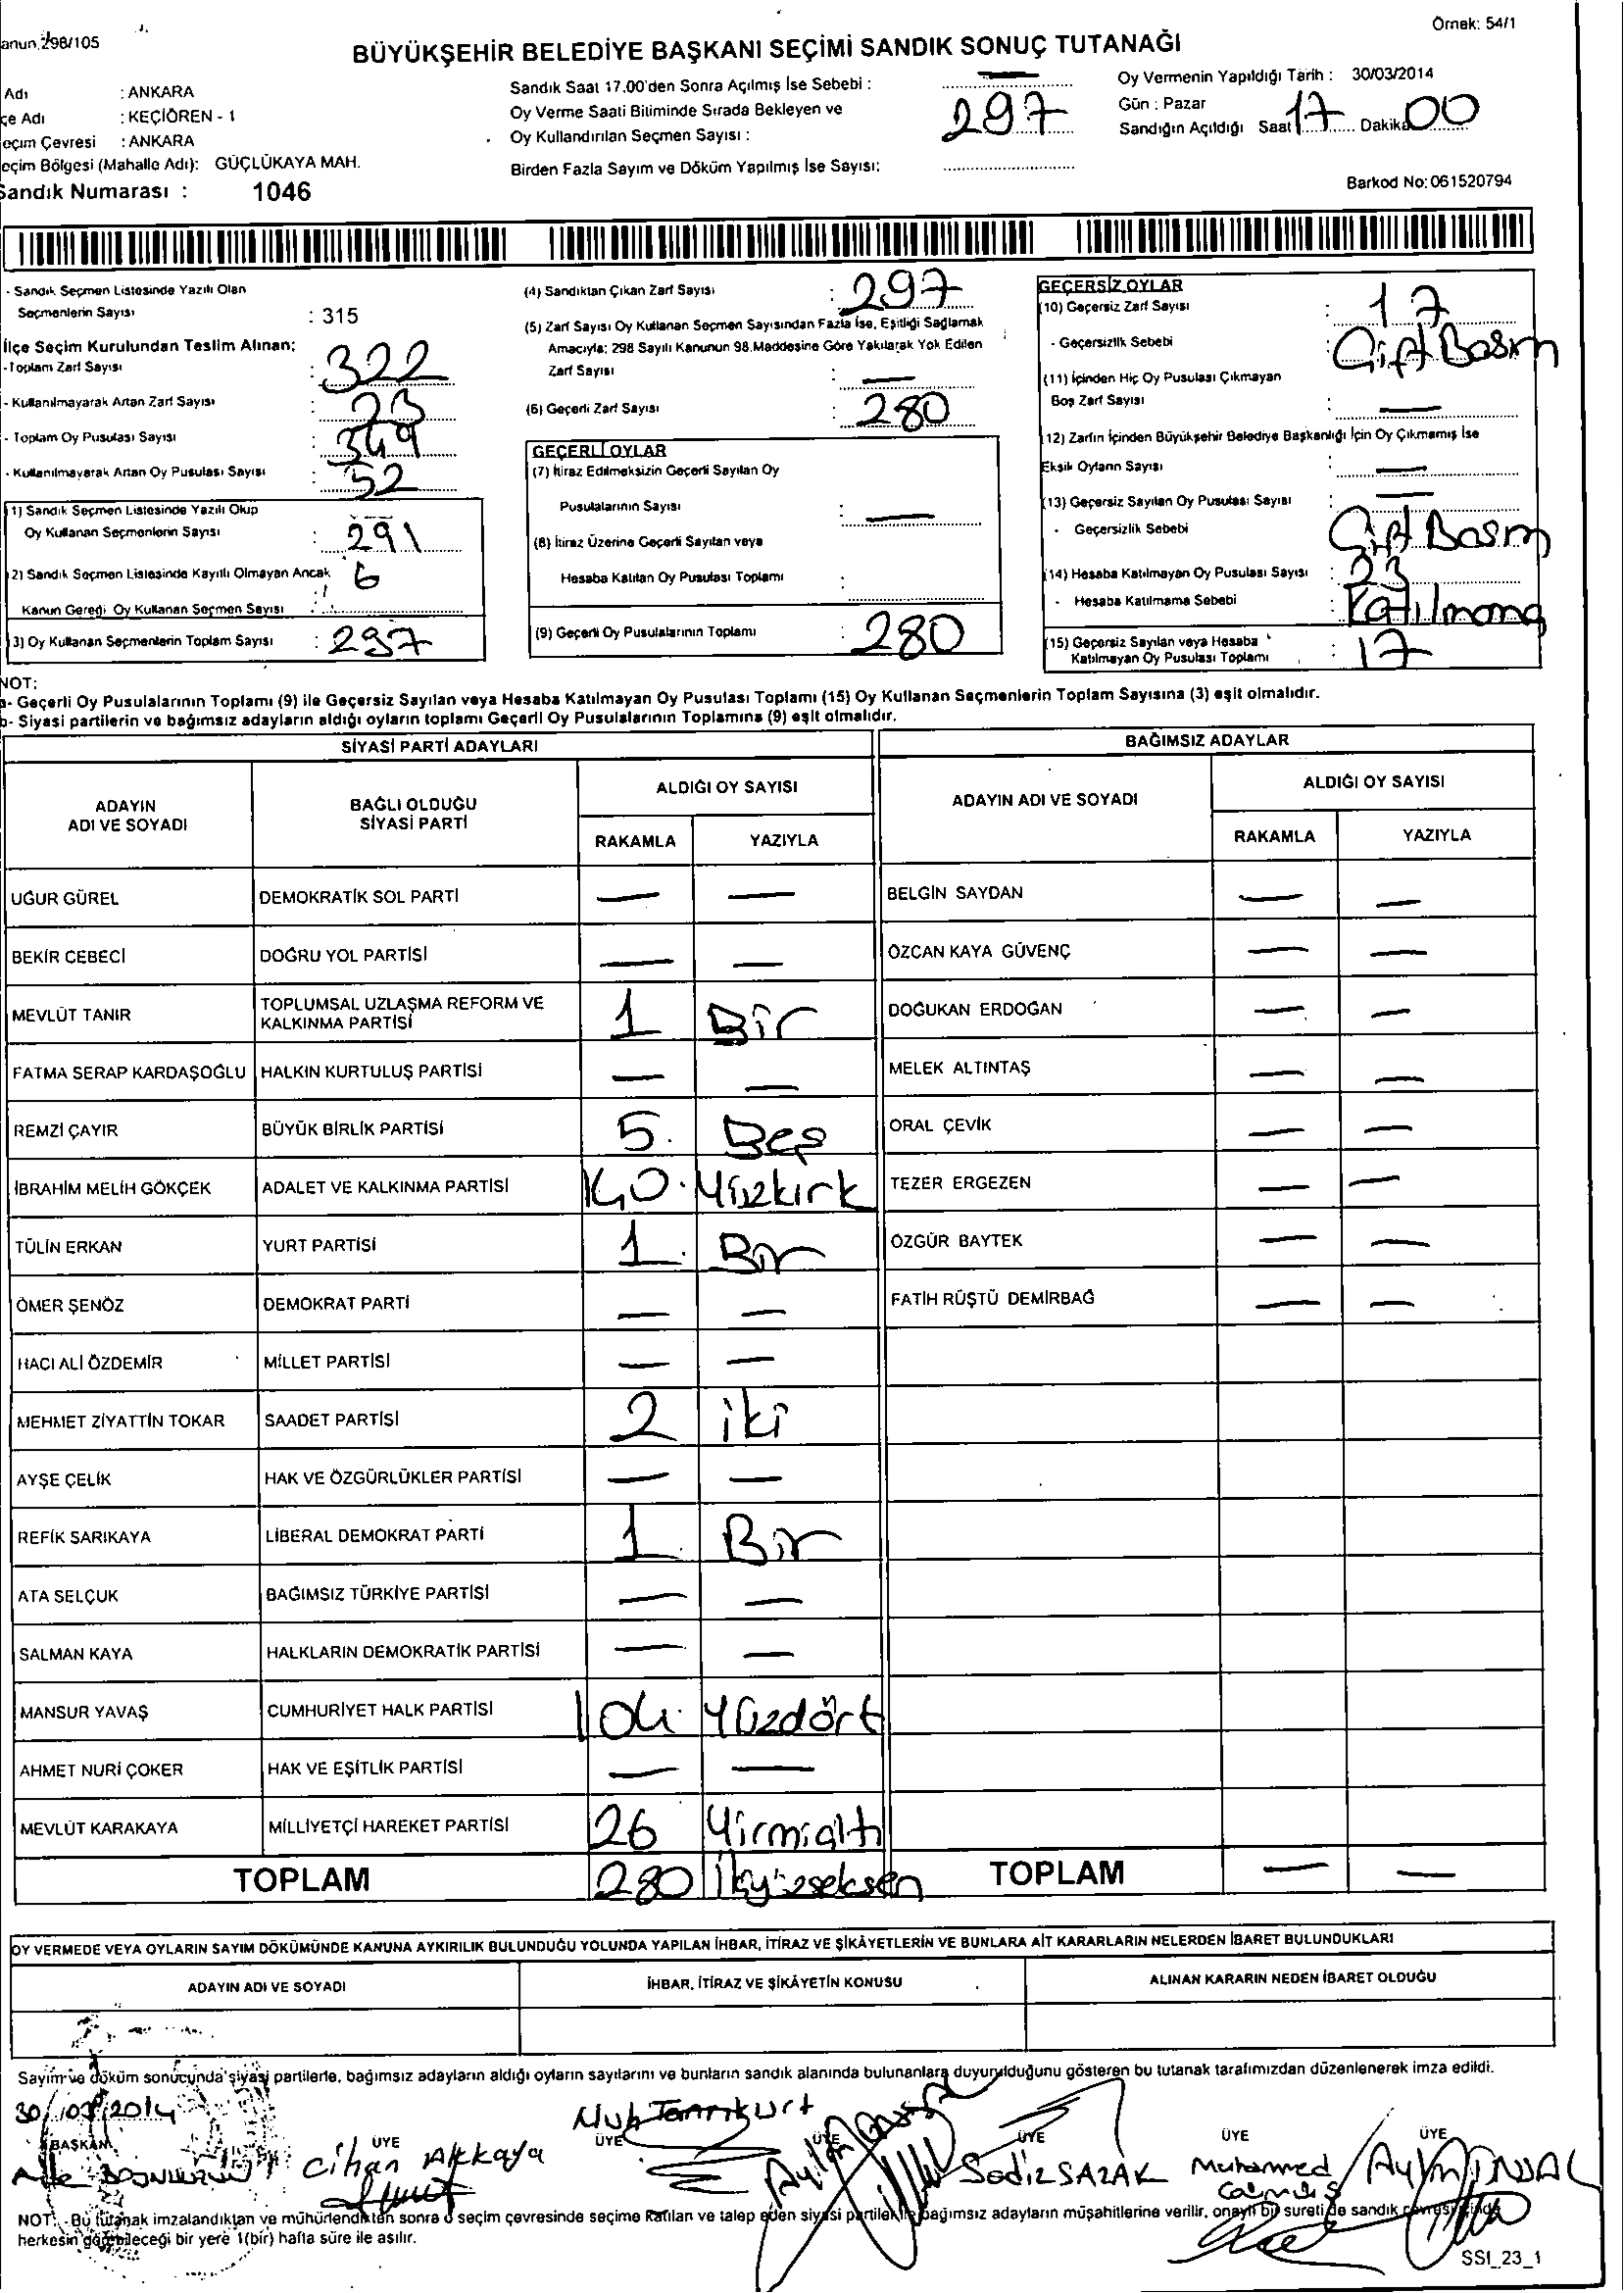 anun 298/105
Örnek: 54/1
BÜYÜKŞEHİR BELEDİYE BAŞKANI SEÇİMİ SANDIK SONUÇ TUTANAĞI
Adı : ANKARA
çe Adı : KEÇİÖREN - 1
eçim Çevresi : ANKARA
eçim Bölgesi (Mahalle Adı): GÜÇLÜKAYA MAH.
Sandık Numarası : 1046
Sandık Saat 17.00'den Sonra Açılmış İse Sebebi : —
Oy Verme Saati Bitiminde Sırada Bekleyen ve
Oy Kullandırılan Seçmen Sayısı : 297
Birden Fazla Sayım ve Döküm Yapılmış İse Sayısı:
Oy Vermenin Yapıldığı Tarih : 30/03/2014
Gün : Pazar
Sandığın Açıldığı Saat 17 Dakika 00
Barkod No: 061520794
- Sandık Seçmen Listesinde Yazılı Olan
Seçmenlerin Sayısı : 315
İlçe Seçim Kurulundan Teslim Alınan;
-Toplam Zarf Sayısı : 322
- Kullanılmayarak Artan Zarf Sayısı : 23
- Toplam Oy Pusulası Sayısı : 349
- Kullanılmayarak Artan Oy Pusulası Sayısı : 52
1) Sandık Seçmen Listesinde Yazılı Olup
Oy Kullanan Seçmenlerin Sayısı : 291
2) Sandık Seçmen Listesinde Kayıtlı Olmayan Ancak
Kanun Gereği Oy Kullanan Seçmen Sayısı : 6
3) Oy Kullanan Seçmenlerin Toplam Sayısı : 297
(4) Sandıktan Çıkan Zarf Sayısı : 297
(5) Zarf Sayısı Oy Kullanan Seçmen Sayısından Fazla İse, Eşitliği Sağlamak
Amacıyla; 298 Sayılı Kanunun 98.Maddesine Göre Yakılarak Yok Edilen
Zarf Sayısı : —
(6) Geçerli Zarf Sayısı : 280
GEÇERLİ OYLAR
(7) İtiraz Edilmeksizin Geçerli Sayılan Oy
Pusulalarının Sayısı : —
(8) İtiraz Üzerine Geçerli Sayılan veya
Hesaba Katılan Oy Pusulası Toplamı :
(9) Geçerli Oy Pusulalarının Toplamı : 280
GEÇERSİZ OYLAR
(10) Geçersiz Zarf Sayısı : 17
- Geçersizlik Sebebi : Çift Basım
(11) İçinden Hiç Oy Pusulası Çıkmayan
Boş Zarf Sayısı : —
12) Zarfın İçinden Büyükşehir Belediye Başkanlığı İçin Oy Çıkmamış İse
Eksik Oyların Sayısı : —
(13) Geçersiz Sayılan Oy Pusulası Sayısı : —
- Geçersizlik Sebebi : Çift Basım
(14) Hesaba Katılmayan Oy Pusulası Sayısı : 23
- Hesaba Katılmama Sebebi :
(15) Geçersiz Sayılan veya Hesaba
Katılmayan Oy Pusulası Toplamı : 17
NOT:
a- Geçerli Oy Pusulalarının Toplamı (9) ile Geçersiz Sayılan veya Hesaba Katılmayan Oy Pusulası Toplamı (15) Oy Kullanan Seçmenlerin Toplam Sayısına (3) eşit olmalıdır.
b- Siyasi partilerin ve bağımsız adayların aldığı oyların toplamı Geçerli Oy Pusulalarının Toplamına (9) eşit olmalıdır.
SİYASİ PARTİ ADAYLARI
ADAYIN ADI VE SOYADI
BAĞLI OLDUĞU SİYASİ PARTİ
ALDIĞI OY SAYISI
RAKAMLA YAZIYLA
BAĞIMSIZ ADAYLAR
ADAYIN ADI VE SOYADI
ALDIĞI OY SAYISI
RAKAMLA YAZIYLA
UĞUR GÜREL DEMOKRATİK SOL PARTİ — — BELGİN SAYDAN — —
BEKİR CEBECİ DOĞRU YOL PARTİSİ — — ÖZCAN KAYA GÜVENÇ — —
MEVLÜT TANIR TOPLUMSAL UZLAŞMA REFORM VE KALKINMA PARTİSİ 1 Bir DOĞUKAN ERDOĞAN — —
FATMA SERAP KARDAŞOĞLU HALKIN KURTULUŞ PARTİSİ — — MELEK ALTINTAŞ — —
REMZİ ÇAYIR BÜYÜK BİRLİK PARTİSİ 5 Beş ORAL ÇEVİK — —
İBRAHİM MELİH GÖKÇEK ADALET VE KALKINMA PARTİSİ 140 Yüzkırk TEZER ERGEZEN — —
TÜLİN ERKAN YURT PARTİSİ 1 Bir ÖZGÜR BAYTEK — —
ÖMER ŞENÖZ DEMOKRAT PARTİ — — FATİH RÜŞTÜ DEMİRBAĞ — —
HACI ALİ ÖZDEMİR MİLLET PARTİSİ — —
MEHMET ZİYATTİN TOKAR SAADET PARTİSİ 2 iki
AYŞE ÇELİK HAK VE ÖZGÜRLÜKLER PARTİSİ — —
REFİK SARIKAYA LİBERAL DEMOKRAT PARTİ 1 Bir
ATA SELÇUK BAĞIMSIZ TÜRKİYE PARTİSİ — —
SALMAN KAYA HALKLARIN DEMOKRATİK PARTİSİ — —
MANSUR YAVAŞ CUMHURİYET HALK PARTİSİ 104 Yüzdört
AHMET NURİ ÇOKER HAK VE EŞİTLİK PARTİSİ — —
MEVLÜT KARAKAYA MİLLİYETÇİ HAREKET PARTİSİ 26 Yirmialtı
TOPLAM 280 TOPLAM — —
OY VERMEDE VEYA OYLARIN SAYIM DÖKÜMÜNDE KANUNA AYKIRILIK BULUNDUĞU YOLUNDA YAPILAN İHBAR, İTİRAZ VE ŞİKÂYETLERİN VE BUNLARA AİT KARARLARIN NELERDEN İBARET BULUNDUKLARI
ADAYIN ADI VE SOYADI
İHBAR, İTİRAZ VE ŞİKÂYETİN KONUSU
ALINAN KARARIN NEDEN İBARET OLDUĞU
Sayım ve döküm sonucunda siyasi partilerle, bağımsız adayların aldığı oyların sayılarını ve bunların sandık alanında bulunanlara duyurulduğunu gösteren bu tutanak tarafımızdan düzenlenerek imza edildi.
30/03/2014
BAŞKAN ÜYE ÜYE ÜYE ÜYE ÜYE ÜYE
Cihan Akkaya
Sediz SAZAK
Muhammed
NOT: -Bu tutanak imzalandıktan ve mühürlendikten sonra o seçim çevresinde seçime katılan ve talep eden siyasi partiler ile bağımsız adayların müşahitlerine verilir, onaylı bir sureti de sandık çevresi içinde
herkesin görebileceği bir yere 1(bir) hafta süre ile asılır.
SSI_23_1